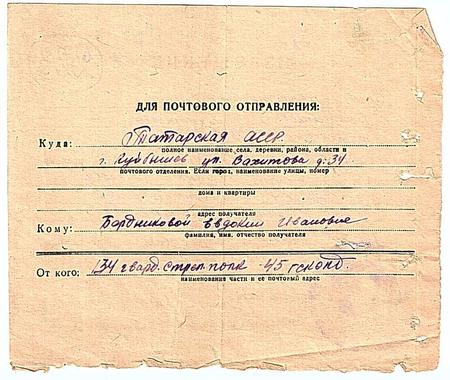 ДЛЯ ПОЧТОВОГО ОТПРАВЛЕНИЯ:
Куда: Татарская АССР.
полное наименование села, деревни, района, области и
г. Куйбышев ул. Вахитова д. 34
почтового отделения. Если город, наименование улицы, номер
дома и квартиры
адрес получателя
Кому: Бардниковой Евдокии Ивановне
фамилия, имя, отчество получателя
От кого: 134 гвард. стрел. полк 45
наименования части и ее почтовый адрес